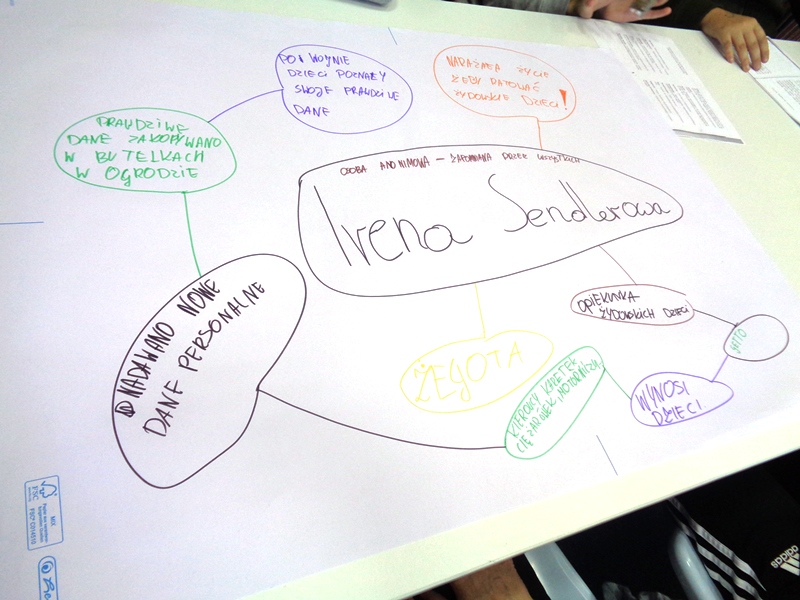 PO WOJNIE
DZIECI POZNAŁY
SWOJE PRAWDZIWE
DANE
NARAŻAŁA ŻYCIE
ŻEBY RATOWAĆ
ŻYDOWSKIE DZIECI!
PRAWDZIWE
DANE ZAKOPYWANO
W BUTELKACH
W OGRODZIE
OSOBA ANONIMOWA – ZAPOMNIANA PRZEZ WSZYSTKICH
Irena Sendlerowa
NADAWANO NOWE
DANE PERSONALNE
OPIEKUNKA
ŻYDOWSKICH DZIECI
GETTO
ŻEGOTA
WYNOSI
DZIECI
KIEROWCY KARETEK
CIĘŻARÓWEK, MOTORNICZY
FSC
MIX
adidas